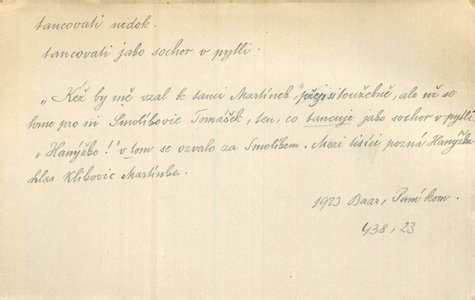 tancovati nedok.
tancovati jako sochor v pytli.
„Kéž by mě vzal k tanci Martínek", přeje si toužebně, ale už se
hrne pro ni Smolíkovic Tomášek, ten, co tancuje jako sochor v pytli
„Hanýžko!" v tom se ozvalo za Smolíkem. Mezi tisíci pozná Hanýžka
hlas Klikovic Martínka.
1923 Baar, Paní kom.
438, 23